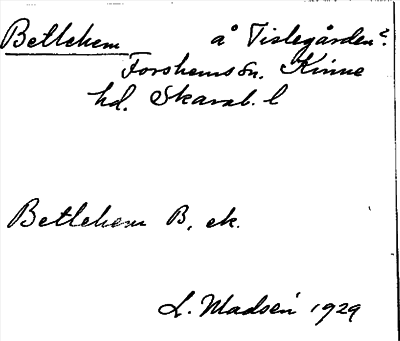 Betlehem å Tislegården?
Forshems sn. Kinne
hd. Skarab. l
Betlehem B, ek.
L. Madsén 1929